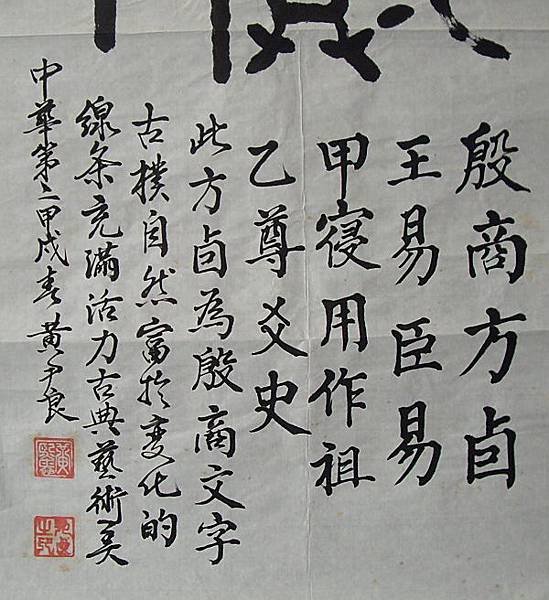 殷商方卣
王易臣易
甲寑用作祖
乙尊爻史
此方卣為殷商文字
古樸自然富於變化的
線条充滿活力古典藝術美
中華第二甲戌春黃尹良